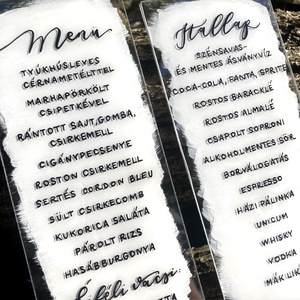 Menü
TYÚKHÚSLEVES
CÉRNAMETÉLTTEL
MARHAPÖRKÖLT
CSIPETKÉVEL
RÁNTOTT SAJT, GOMBA,
CSIRKEMELL
CIGÁNYPECSENYE
ROSTON CSIRKEMELL
SERTÉS CORDON BLEU
SÜLT CSIRKECOMB
KUKORICA SALÁTA
PÁROLT RIZS
HASÁBBURGONYA
Éjféli vacsi:
Itallap
SZÉNSAVAS-
ÉS MENTES ÁSVÁNYVÍZ
COCA-COLA, FANTA, SPRITE
ROSTOS BARACKLÉ
ROSTOS ALMALÉ
CSAPOLT SOPRONI
ALKOHOLMENTES SÖR
BORVÁLOGATÁS
ESPRESSO
HÁZI PÁLINKA
UNICUM
WHISKY
VODKA